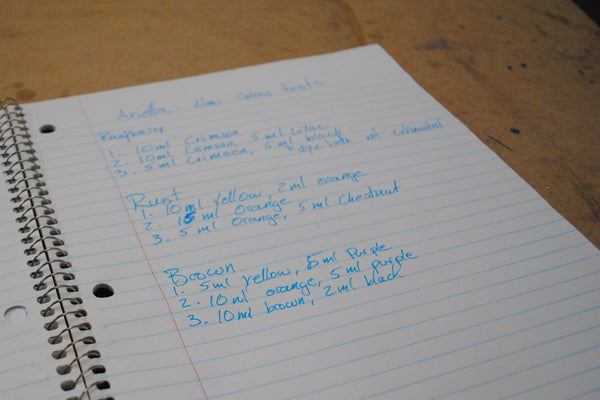 New Colour tests
Raspberry
1. 10ml Crimson
2. 10ml Crimson, 5ml Lilac
3. 5ml Crimson, 5ml black
Rust
1. 10ml yellow, 2ml orange
2. 15ml Orange
3. 5ml Orange, 5ml Chestnut
Brown
1. 5ml yellow, 5ml Purple
2. 10ml orange, 5ml purple
3. 10ml brown, 2ml black